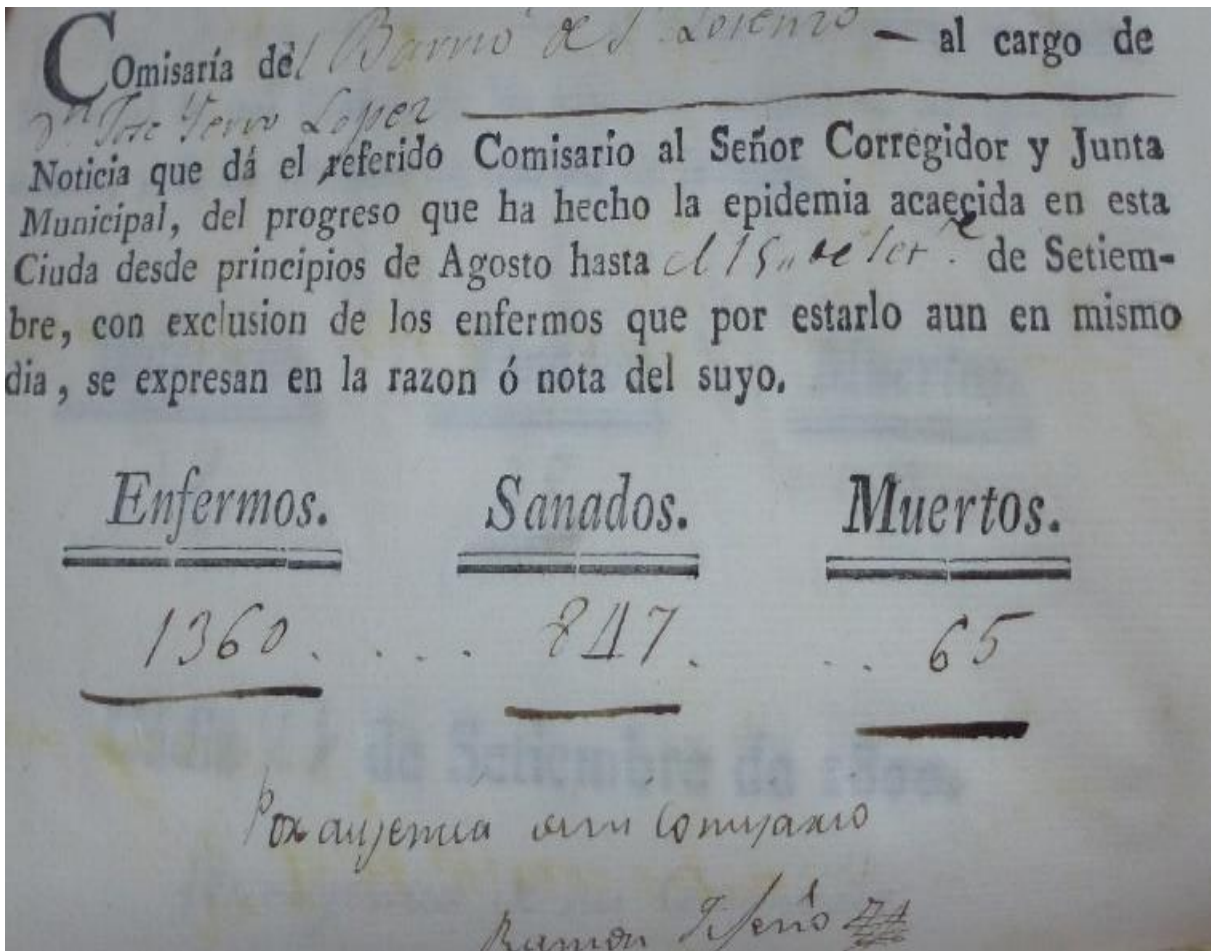 Comisaría del Barrio de Sn. Lorenzo — al cargo de
Dn. Jose Lopez
Noticia que dá el referido Comisario al Señor Corregidor y Junta
Municipal, del progreso que ha hecho la epidemia acaecida en esta
Ciuda desde principios de Agosto hasta el 15,, de de Setiem-
bre, con exclusion de los enfermos que por estarlo aun en mismo
dia, se expresan en la razon ó nota del suyo.
Enfermos. Sanados. Muertos.
1360. . . . 847. . . 65
Por ausencia Comisario
Ramon